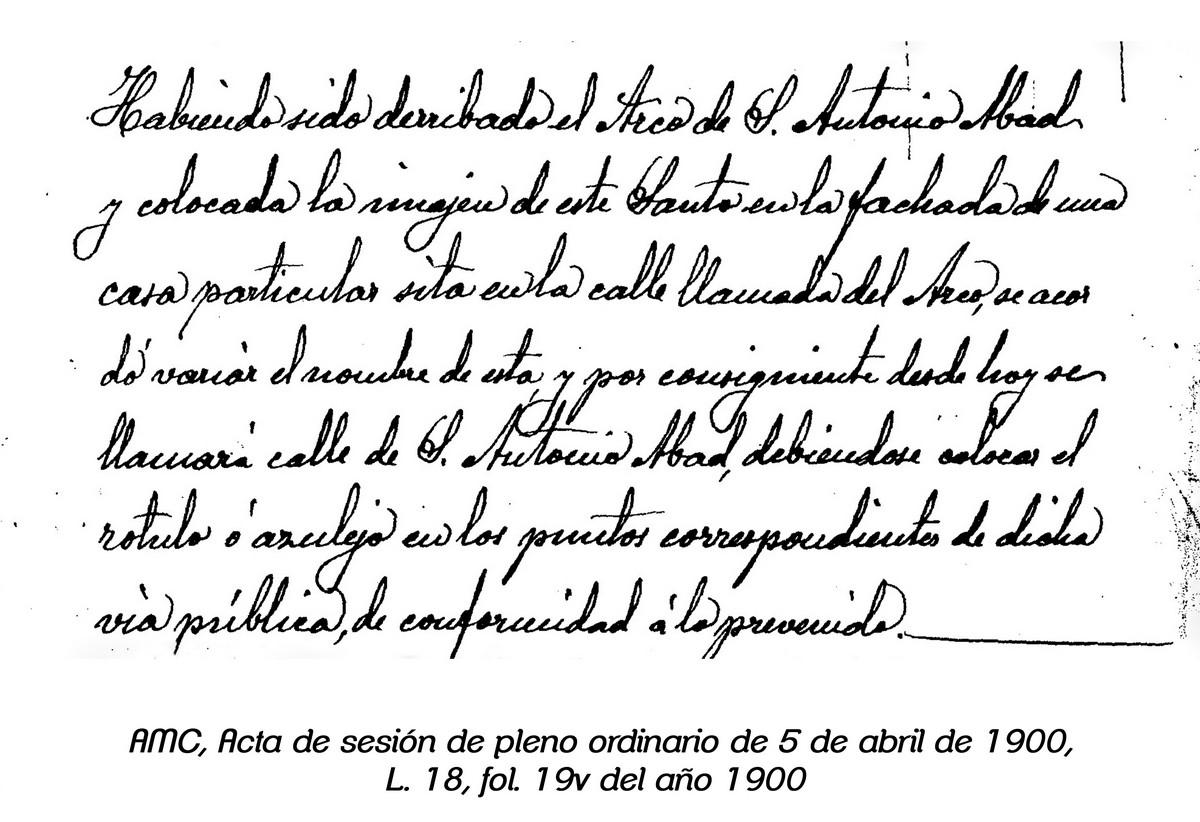 Habiendo sido derribado el Arco de S. Antonio Abad
y colocada la imajen de este Santo en la fachada de una
casa particular sita en la calle llamada del Arco, se acor
dó variar el nombre de esta, y por consigniente desde hoy se
llamará calle de S. Antonio Abad, debiendose colocar el
rotulo ó azulejo en los puntos correspondientes de dicha
via pública, de conformidad á lo prevenido.
AMC, Acta de sesión de pleno ordinario de 5 de abril de 1900,
L. 18, fol. 19v del año 1900